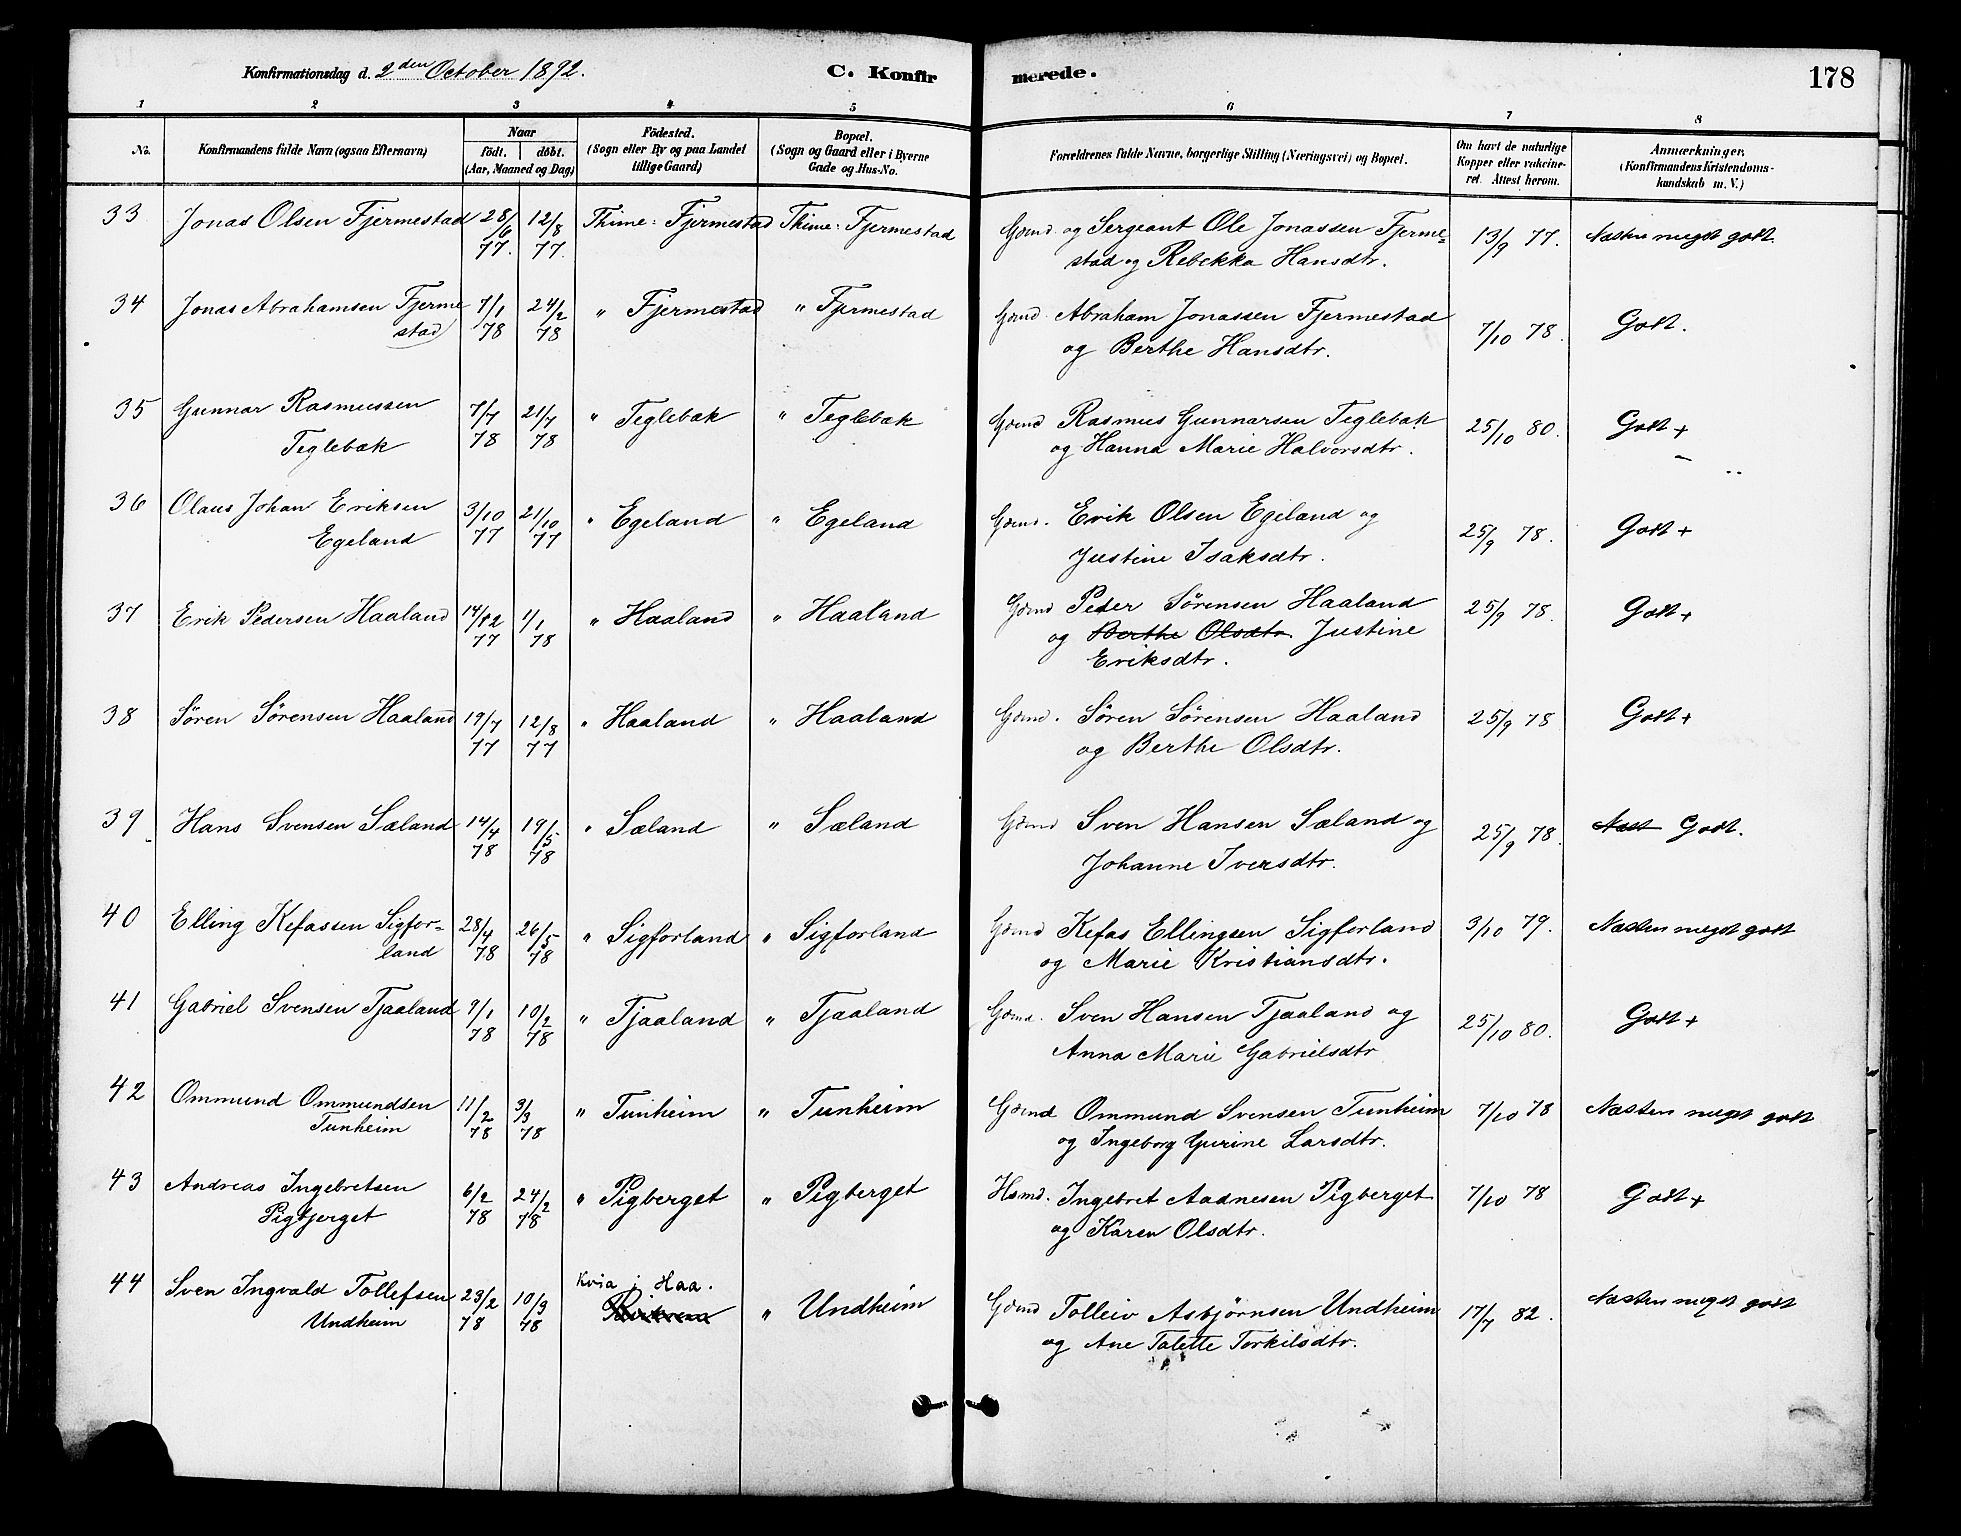 Konfirmationsdag d. 2den October 1892. C. Konfirmerede. 178
1 2 3 4 5 6 7 8
No. Konfirmandens fulde Navn (ogsaa Efternavn) Naar födt. döbt. (Aar, Maaned og Dag) Födested. (Sogn eller By og paa Landet tillige Gaard) Bopæl. (Sogn og Gaard eller i Byerne Gade og Hus-No. Forældrenes fulde Navne, borgerlige Stilling (Næringsvei) og Bopæl. Om havt de naturlige Kopper eller vakcineret. Attest herom. Anmærkninger, (Konfirmandens Kristendomskundskab m. V.)
33 Jonas Olsen Fjermestad 28/6 77. 12/8 77. Thime: Fjermestad Thime: Fjermestad Gmd. og Sergeant Ole Jonassen Fjerme= 13/9 77. Næsten meget godt.
stad og Rebekka Hansdtr.
34 Jonas Abrahamsen Fjerme 7/1 78 24/2 78 " Fjermestad " Fjermestad Gmd. Abraham Jonassen Fjermestad 7/10 78. Godt.
stad og Berthe Hansdtr.
35 Gunnar Rasmussen 7/7 78 21/7 78 " Teglebak " Teglebak Gmd Rasmus Gunnarsen Teglebak 25/10 80. Godt +
Teglebak og Hanna Marie Halvorsdtr.
36 Olaus Johan Eriksen 3/10 77 21/10 77 " Egeland " Egeland Gmd. Erik Olsen Egeland og 25/9 78. Godt +
Egeland Justine Isaksdtr.
37 Erik Pedersen Haaland 14/12 77 1/1 78 " Haaland " Haaland Gmd Peder Sørensen Haaland 25/9 78. Godt +
og Berthe Olsdtr. Justine
Eriksdtr.
38 Søren Sørensen Haaland 19/7 77 12/8 77 " Haaland " Haaland Gmd. Søren Sørensen Haaland 25/9 78 Godt +
og Berthe Olsdtr.
39 Hans Svensen Sæland 14/4 78 19/5 78 " Sæland " Sæland Gmd Sven Hansen Sæland og 25/9 78. Næst Godt.
Johanne Iversdtr.
40 Elling Kefassen Sigfor- 28/4 78 26/5 78 " Sigforland " Sigforland Gmd Kefas Ellingsen Sigforland 3/10 79. Næsten meget godt
land og Marie Kristiansdtr.
41 Gabriel Svensen Tjaaland 9/1 78 10/2 78 " Tjaaland " Tjaaland Gmd. Sven Hansen Tjaaland og 25/10 80. Godt +
Anna Marie Gabrielsdtr
42 Ommund Ommundsen 11/2 78 3/3 78 " Tunheim " Tunheim Gmd Ommund Svensen Tunheim 7/10 78 Næsten meget godt
Tunheim og Ingeborg Gurine Larsdtr.
43 Andreas Ingebretsen 6/2 78 24/2 78 " Pigberget " Pigberget Hsmd. Ingebret Aadnesen Pigberget 7/10 78 Godt +
Pigbjerget og Karen Olsdtr.
44 Sven Ingvald Tollefsen 23/2 78 10/3 78 Kvia i Haa. " Undheim Gmd Tolleiv Asbjørnsen Undheim 17/7 82. Næsten meget godt
Undheim og Ane Talette Torkilsdtr.